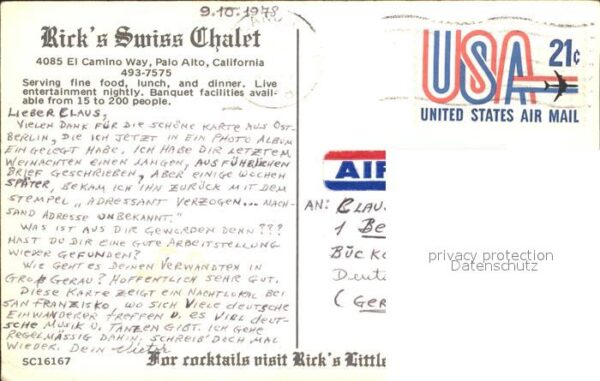 9.10.1978
Rick's Swiss Chalet
4085 El Camino Way, Palo Alto, California
493-7575
Serving fine food, lunch, and dinner. Live
entertainment nightly. Banquet facilities avail-
able from 15 to 200 people.
LIEBER CLAUS,
VIELEN DANK FÜR DIE SCHÖNE KARTE AUS OST-
BERLIN, DIE ICH JETZT IN EIN PHOTO ALBUM
EINGELEGT HABE. ICH HABE DIR LETZTEM
WEIHNACHTEN EINEN LANGEN, AUSFÜHRLICHEN
BRIEF GESCHRIEBEN, ABER EINIGE WOCHEN
SPÄTER, BEKAM ICH IHN ZURÜCK MIT DEM
STEMPEL „ADRESSANT VERZOGEN... NACH-
SAND ADRESSE UNBEKANNT."
WAS IST AUS DIR GEWORDEN DENN???
HAST DU DIR EINE GUTE ARBEITSTELLUNG
WIEDER GEFUNDEN?
WIE GEHT ES DEINEN VERWANDTEN IN
GROß GERAU? HOFFENTLICH SEHR GUT.
DIESE KARTE ZEIGT EIN NACHTLOKAL BEI
SAN FRANZISKO, WO SICH VIELE DEUTSCHE
EINWANDERER TREFFEN U. ES VIEL DEUT-
SCHE MUSIK U. TANZEN GIBT. ICH GEHE
REGELMÄSSIG DAHIN. SCHREIB' DOCH MAL
WIEDER. Dein
SC16167
For cocktails visit Rick's Little
USA 21¢
UNITED STATES AIR MAIL
AIR
AN: CLAU
1 BE
BÜCK
Deut
(GER
privacy protection
Datenschutz